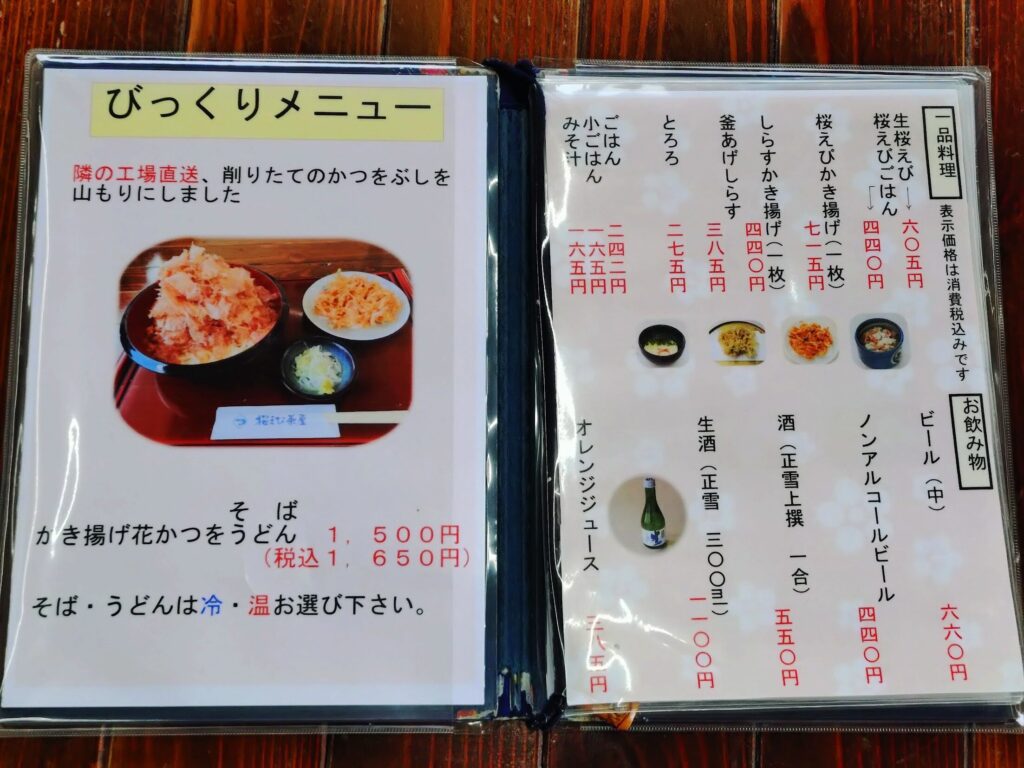 びっくりメニュー
隣の工場直送、削りたてのかつをぶしを
山もりにしました
桜えび茶屋
そば
かき揚げ花かつをうどん １，５００円
（税込１，６５０円）
そば・うどんは冷・温お選び下さい。
一品料理
表示価格は消費税込みです
生桜えび→六〇五円
桜えびごはん→四四〇円
桜えびかき揚げ（一枚）七一五円
しらすかき揚げ（一枚）四四〇円
釜あげしらす 三八五円
とろろ 二七五円
ごはん 二四二円
小ごはん 一六五円
みそ汁 一六五円
お飲み物
ビール（中） 六六〇円
ノンアルコールビール 四四〇円
酒（正雪上撰 一合） 五五〇円
生酒（正雪 三〇〇ml） 一一〇〇円
オレンジジュース 三八五円